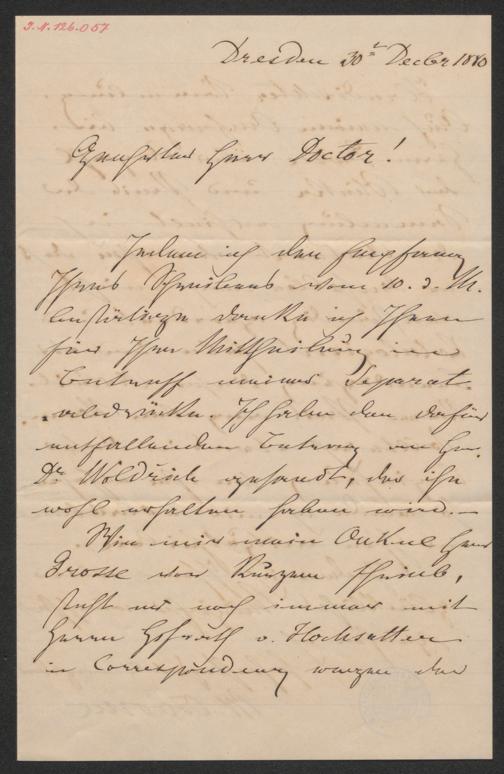 J.N. 126.057
Dresden 30t Decbr 1880
Geehrter Herr Doctor!
Indem ich den Empfang
Ihres Schreibens vom 10. d. M.
bestätige danke ich Ihnen
für Ihre Mittheilung in
Betreff meiner Separat-
abdrücke. Ich habe den dafür
entfallenden Betrag an Hr.
Dr Woldrich gesandt, der ihn
wohl erhalten haben wird. –
Wie mir mein Onkel Herr
Grosse vor Kurzem schrieb,
steht er noch immer mit
Herrn Hofrath v. Hochstetter
in Correspondenz wegen der